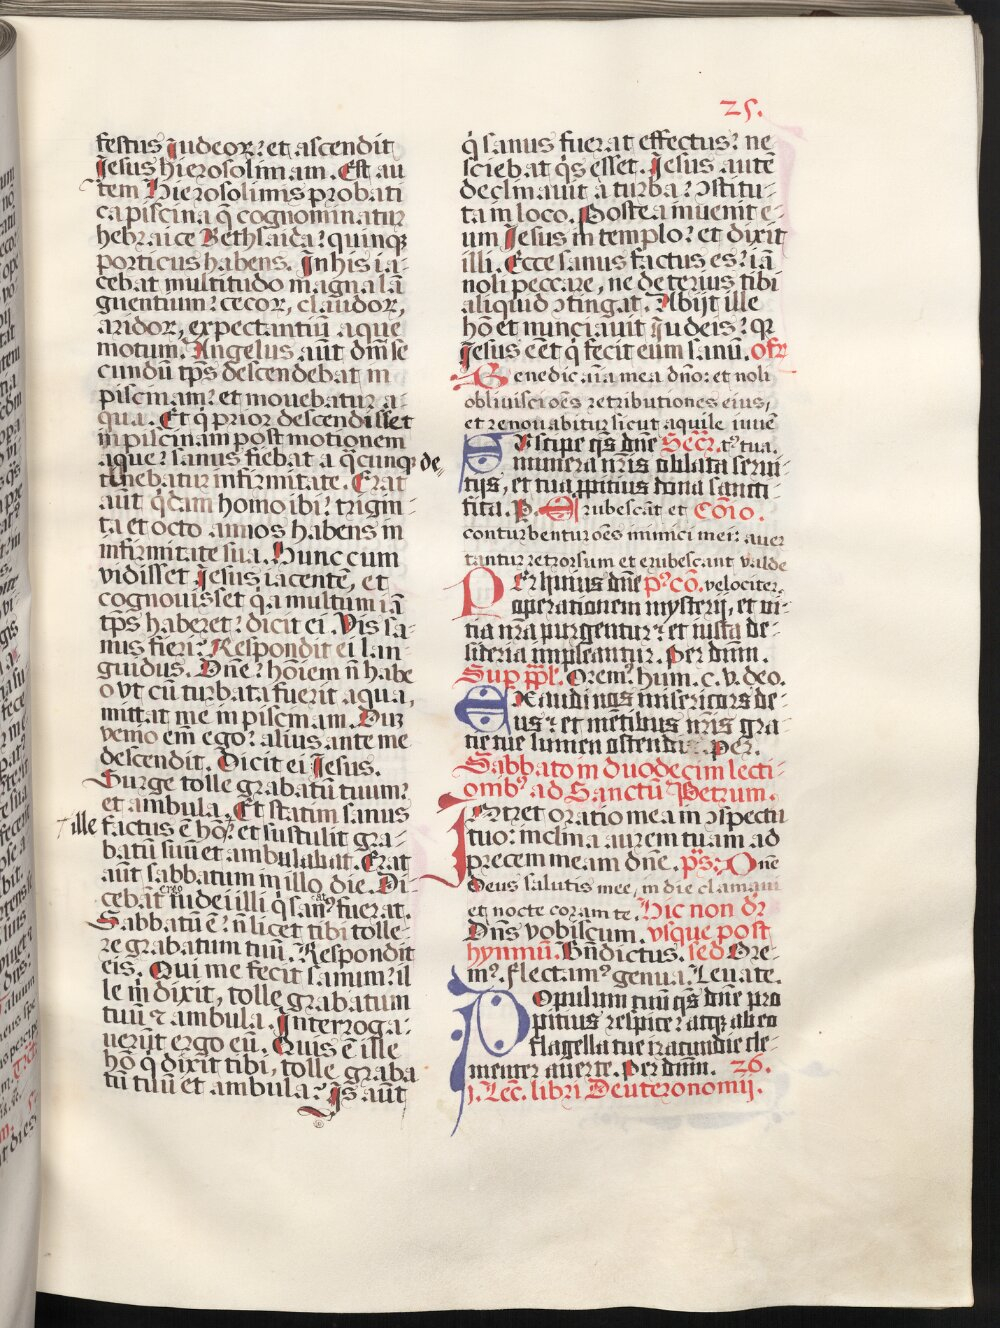 25.
festus iudeoꝝ: et ascendit
Iesus hierosolimam. Est au
tem Hierosolimis probati
ca piscina q̄ cognominatur
hebraice Bethsaida: quinqꝫ
porticus habens. In his ia-
cebat multitudo magna lā
guentium: cecoꝝ, claudoꝝ,
aridoꝝ, expectantiū aque
motum. Angelus aūt dn̄i se
cundū tp̄s descendebat in
piscinam: et mouebatur a-
qua. Et q̇ prior descendisset
in piscinam post motionem
aque: sanus fiebat a q̄cunqꝫ de,
tinebatur infirmitate. Erat
aūt q̇dam homo ibi: trigin-
ta et octo annos habens in
infirmitate sua. Hunc cum
vidisset Iesus iacentē, et
cognouisset q̇a multum iā
tp̄s haberet: dicit ei. Vis sa-
nus fieri: Respondit ei lan-
guidus. Dn̄e: hōiem n̄ habe
o vt cū turbata fuerit aqua,
mittat me in piscinam. Duꝫ
venio em̄ ego: alius ante me
descendit. Dicit ei Iesus.
Surge tolle grabatū tuum:
et ambula. Et statim sanus
⁊ ille factus ē hō: et sustulit gra-
batū suū et ambulabat. Erat
aūt sabbatum in illo die. Di-
cebāt ergo iudei illi q̇ sanꝰ fuerat.
Sabbatū ē: n̄ licet tibi tolle-
re grabatum tuū. Respondit
eis. Qui me fecit sanum: il
le m̄ dixit, tolle grabatum
tuū ⁊ ambula. Interroga-
uerūt ergo eū. Quis ē ille
hō q̇ dixit tibi, tolle graba
tū tuū et ambula: Is aūt
q̇ sanus fuerat effectus: ne
sciebat q̇s esset. Iesus autē
declinauit a turba: ↄstitu-
ta in loco. Postea inuenit e-
um Iesus in templo: et dixit
illi. Ecce sanus factus es: iā
noli peccare, ne deterius tibi
aliquid ↄtingat. Abijt ille
hō et nunciauit iudeis: qꝛ
Iesus eēt q̇ fecit eum sanū. ofꝛ
Benedic aīa mea dn̄o: et noli
obliuisci oēs retributiones eius,
et renouabitur sicut aquile iuuē
Suscipe q̄s dn̄e Secr̄. tꝰ tua.
munera nr̄is oblata serui-
tijs, et tua ꝓpitius dona sancti-
fica. P. Erubescāt et Cōīo.
conturbentur oēs inimici mei: auer
tantur retrorsum et erubescant valde
Per huius dn̄e pꝰcō. velociter.
operationem mysterij, et vi-
tia nr̄a purgentur: et iusta de-
sideria impleantur. Per dn̄m.
Sup pp̄l. Oremꝰ. hum. c. v. deo.
Exaudi nos misericors de-
us: et mētibus nr̄is gra
tie tue lumen ostende. Per.
Sabbato in duodecim lecti-
onibꝰ ad Sanctū Petrum.
Intret oratio mea in ↄspectu
tuo: inclina aurem tuam ad
precem meam dn̄e. p̄s: Dn̄e
Deus salutis mee, in die clamaui
et nocte coram te. Hic non dr̄
Dn̄s vobiscum. vsque post
hymnū. Bn̄dictus. sed Ore-
mꝰ. flectamꝰ genua. Leuate.
Populum tuū q̄s dn̄e pro
pitius respice: atqꝫ ab eo
flagella tue iracundie cle-
menter auerte. Per dn̄m. 26.
j. Lec. libri Deuteronomij.